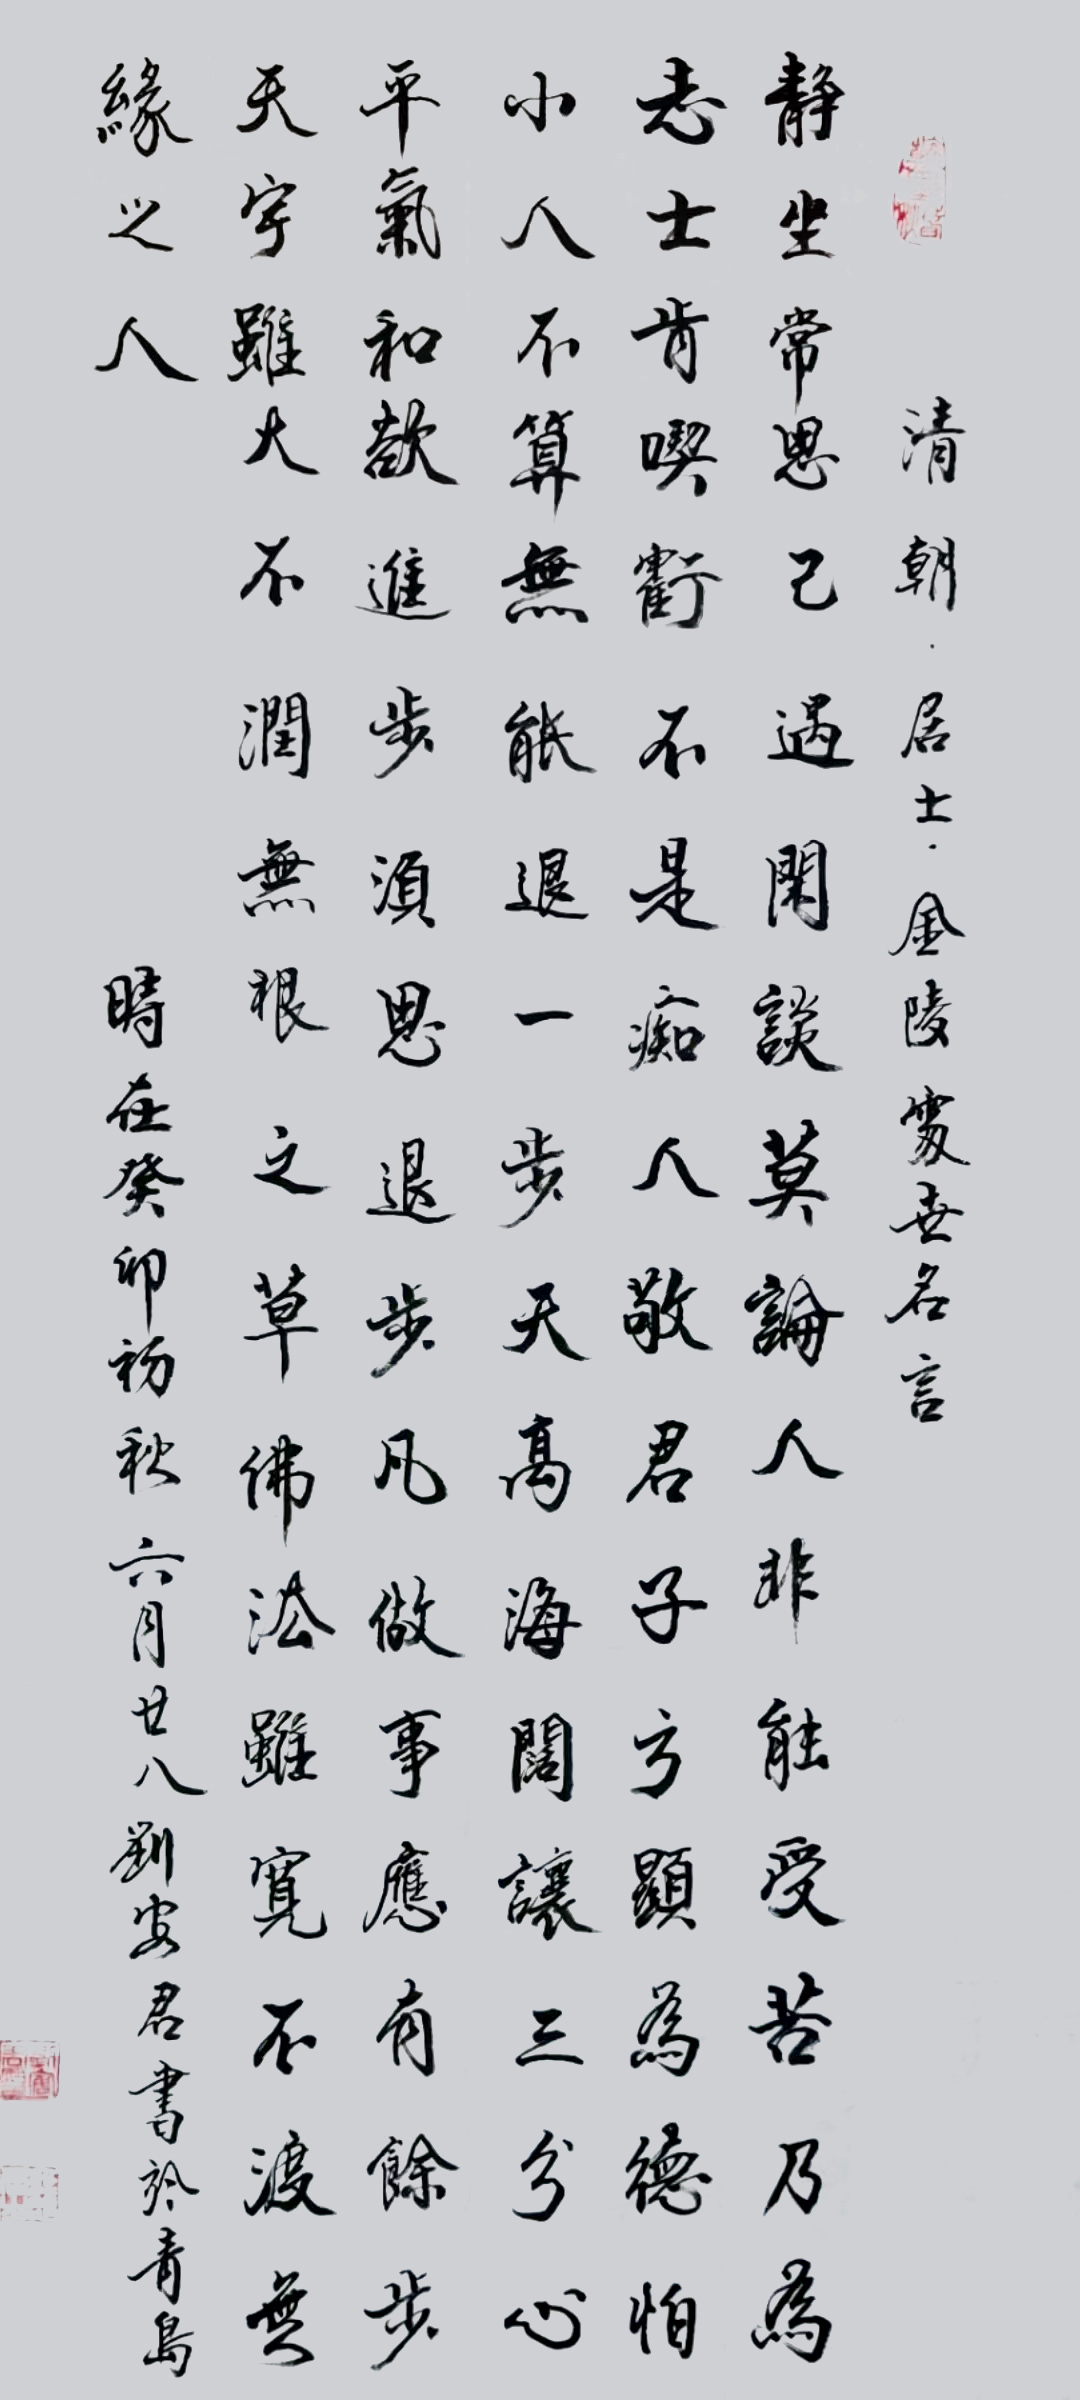 清朝·居士·金陵處世名言
靜坐常思己過閑談莫論人非能受苦乃為
志士肯喫虧不是痴人敬君子方顯為德怕
小人不算無能退一步天高海闊讓三分心
平氣和欲進步須思退步凡做事應有餘步
天宇雖大不潤無根之草佛法雖寬不渡無
緣之人
時在癸卯初秋六月廿八劉安君書於青島